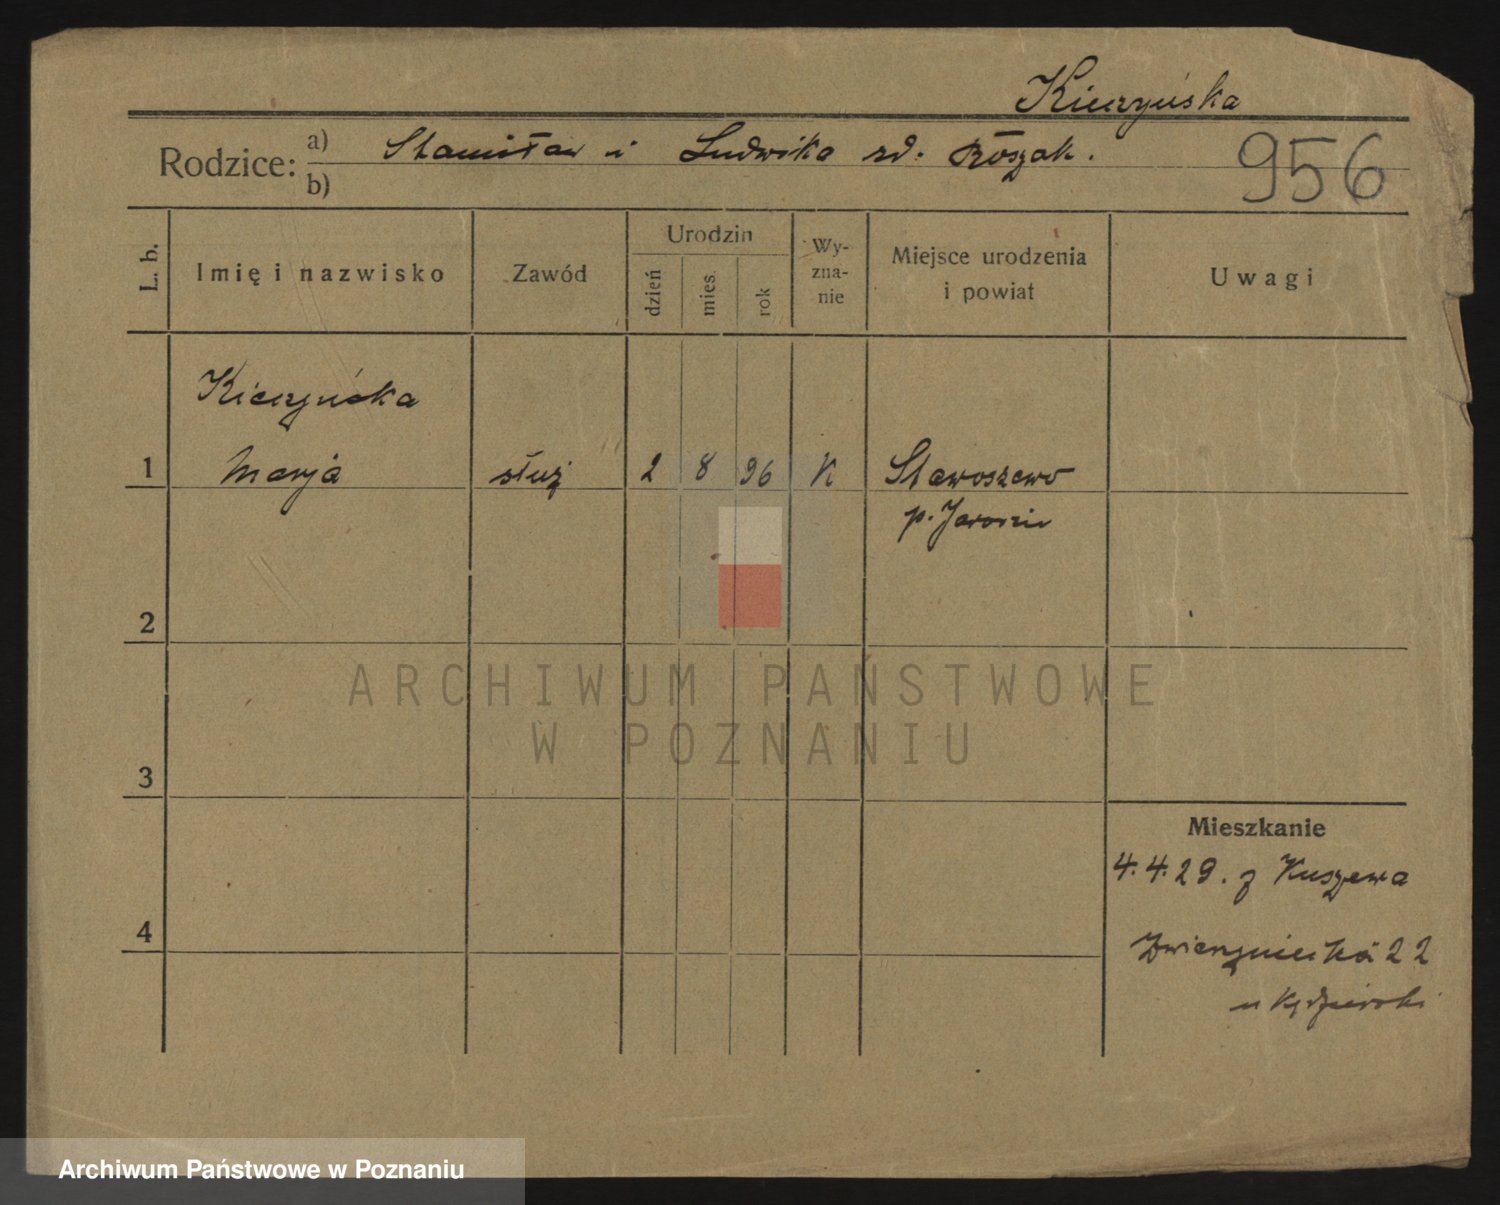 Kierzyńska
Rodzice: a) Stanisław i Ludwika zd. Roszak.
b)
956
L. b.
Imię i nazwisko
Zawód
Urodzin
dzień
mies.
rok
Wy-
zna-
nie
Miejsce urodzenia
i powiat
Uwagi
Kierzyńska
1 Marja służ 2 8 96 K Staroszewo
p. Jarocin
2
3
4
Mieszkanie
4.4.29. z Kuszewa
Zwierzyniecka 22
u Kędzierski
ARCHIWUM PAŃSTWOWE
W POZNANIU
Archiwum Państwowe w Poznaniu